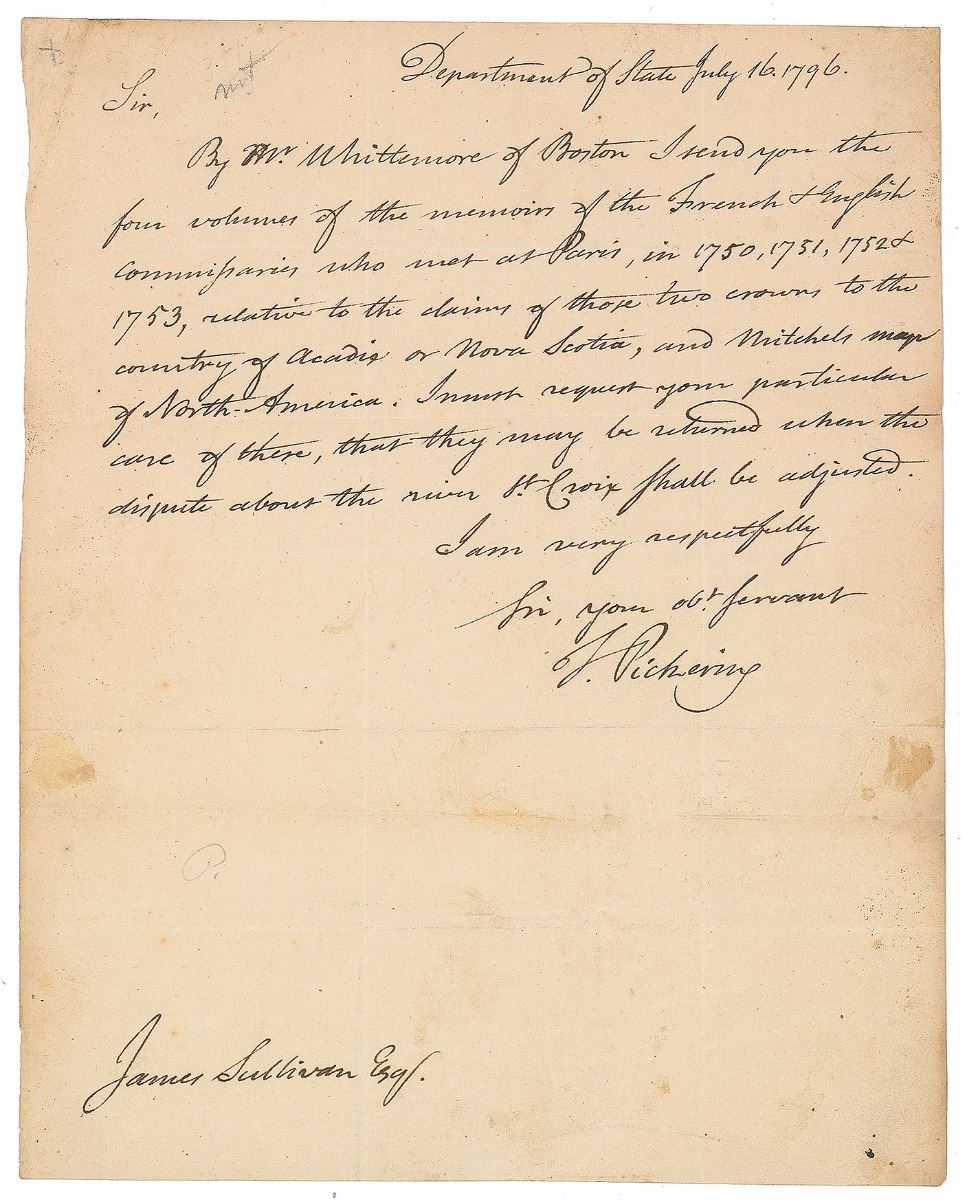 Department of State July 16. 1796.
Sir,
By Mr. Whittemore of Boston I send you the
four volumes of the memoirs of the French & English
commissaries who met at Paris, in 1750, 1751, 1752 &
1753, relative to the claims of those two crowns to the
country of Acadie or Nova Scotia, and Mitchels map
of North-America. I must request your particular
care of these, that they may be returned when the
dispute about the river St. Croix shall be adjusted.
I am very respectfully
Sir, your obt. servant
T. Pickering
P.
James Sullivan Esq.